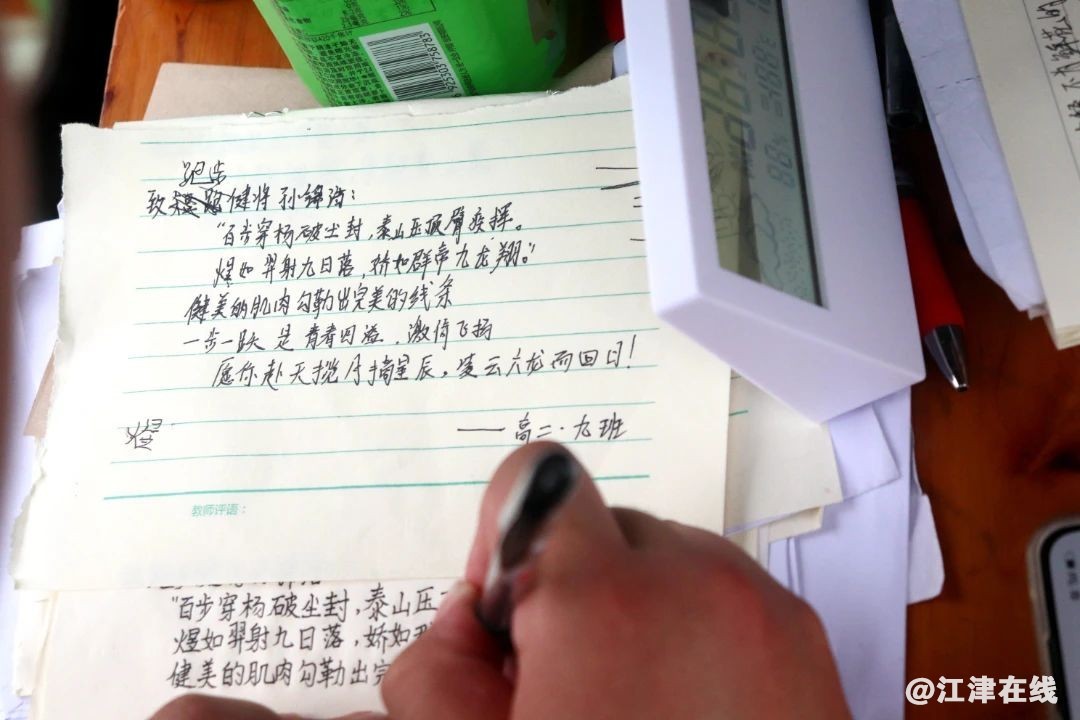 跑步
致健将孙绵浩：
“百步穿杨破尘封，泰山压顶臂疾挥。
煜如羿射九日落，娇如群帝九龙翔。”
健美的肌肉勾勒出完美的线条
一步一跃是青春回溢，激情飞扬
愿你赴天揽月摘星辰，凌云六龙而回日！
煜
——高二·九班
教师评语：
“百步穿杨破尘封，泰山压
煜如羿射九日落，娇如群
健美的肌肉勾勒出完
@江津在线